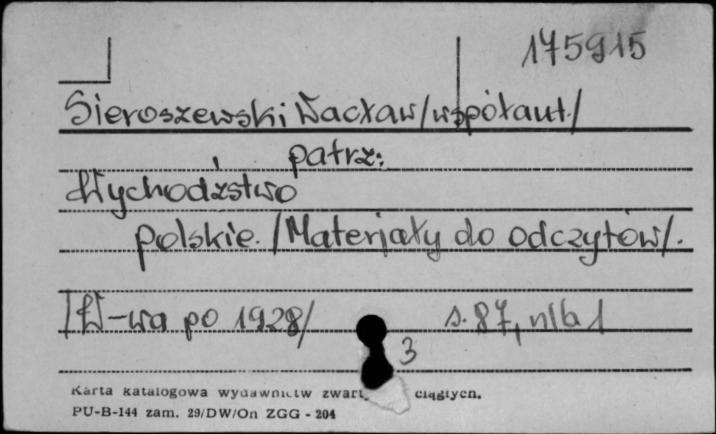 175915
Sieroszewski Wacław/współaut./
patrz:
Wychodźstwo
polskie. /Materjały do odczytów/.
/W-wa po 1928/ s. 87, nlb 1
3
Karta katalogowa wydawnictw zwart ciągłych.
PU-B-144 zam. 29/DW/On ZGG - 204